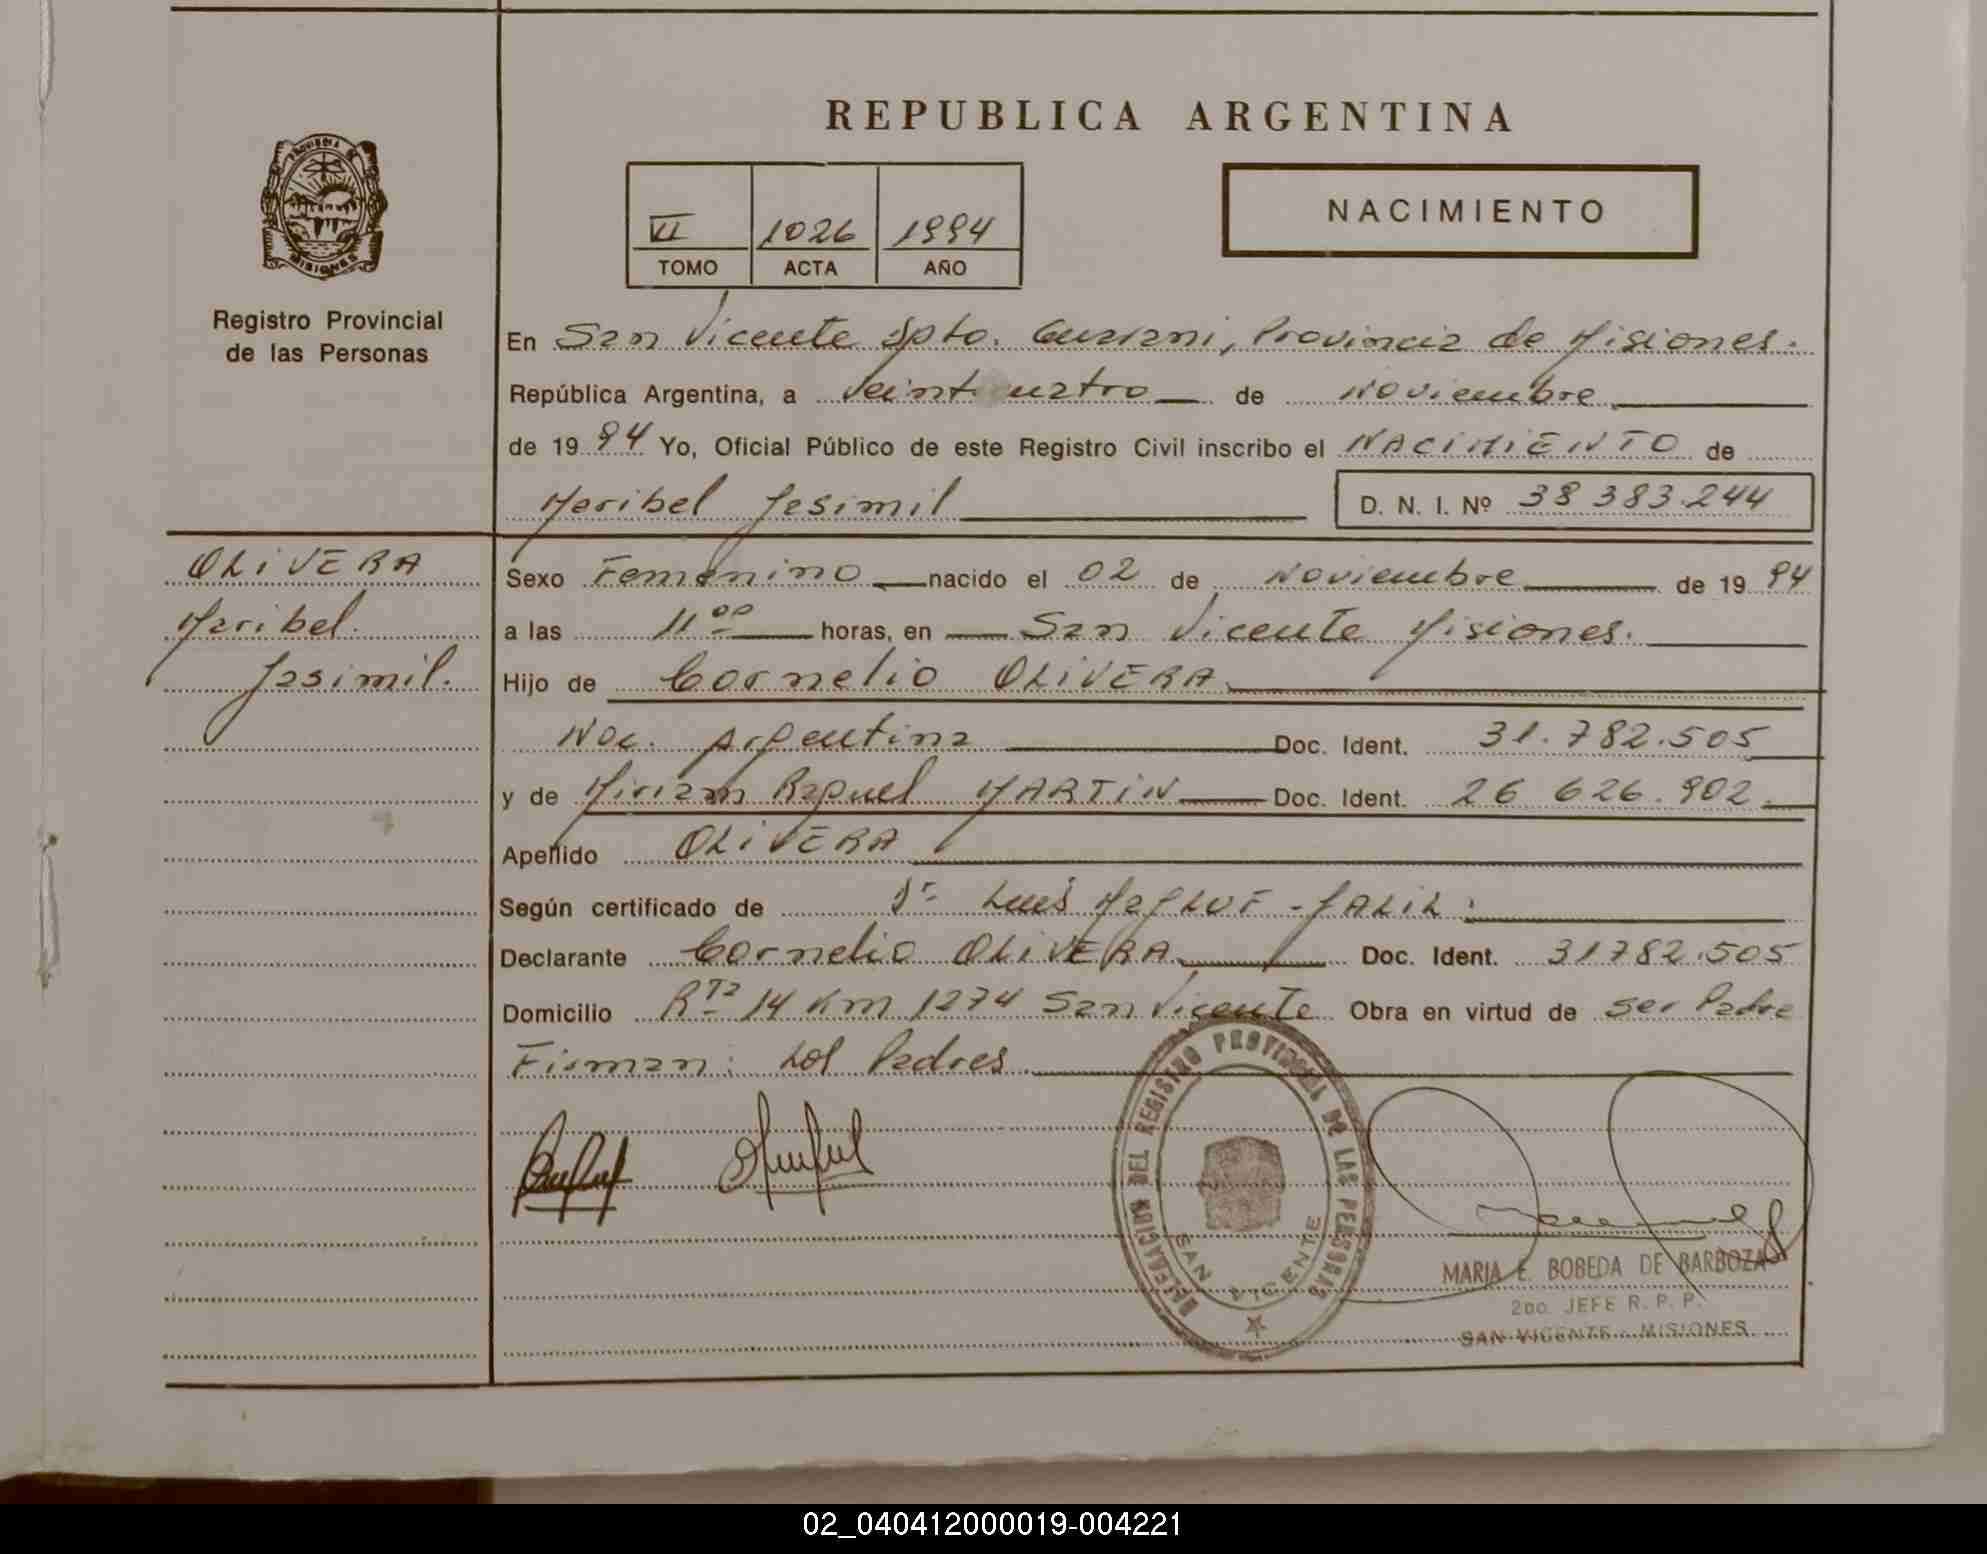 REPUBLICA ARGENTINA
PROVINCIA DE MISIONES
Registro Provincial
de las Personas
VI 1026 1994
TOMO ACTA AÑO
NACIMIENTO
En San Vicente Dpto. Guarani, Provincia de Misiones.
República Argentina, a Veinticuatro de Noviembre
de 1994 Yo, Oficial Público de este Registro Civil inscribo el NACIMIENTO de
Maribel Jasimil D. N. I. Nº 38 383.244
OLIVERA
Maribel
Jasimil.
Sexo Femenino nacido el 02 de Noviembre de 1994
a las 11 00 horas, en San Vicente Misiones.
Hijo de Cornelio OLIVERA
Nac. Argentina Doc. Ident. 31.782.505
y de Miriam Raquel MARTIN Doc. Ident. 26 626.902.
Apellido OLIVERA
Según certificado de Dr Luis
Declarante Cornelio OLIVERA Doc. Ident. 31782.505
Domicilio Rta 14 Km 1274 San Vicente Obra en virtud de ser Padre
Firman: los Padres
DELEGACION DEL REGISTRO PROVINCIAL DE LAS PERSONAS
SAN VICENTE
MARIA E. BOBEDA DE BARBOZA
2do. JEFE R. P. P.
SAN VICENTE - MISIONES
02_040412000019-004221